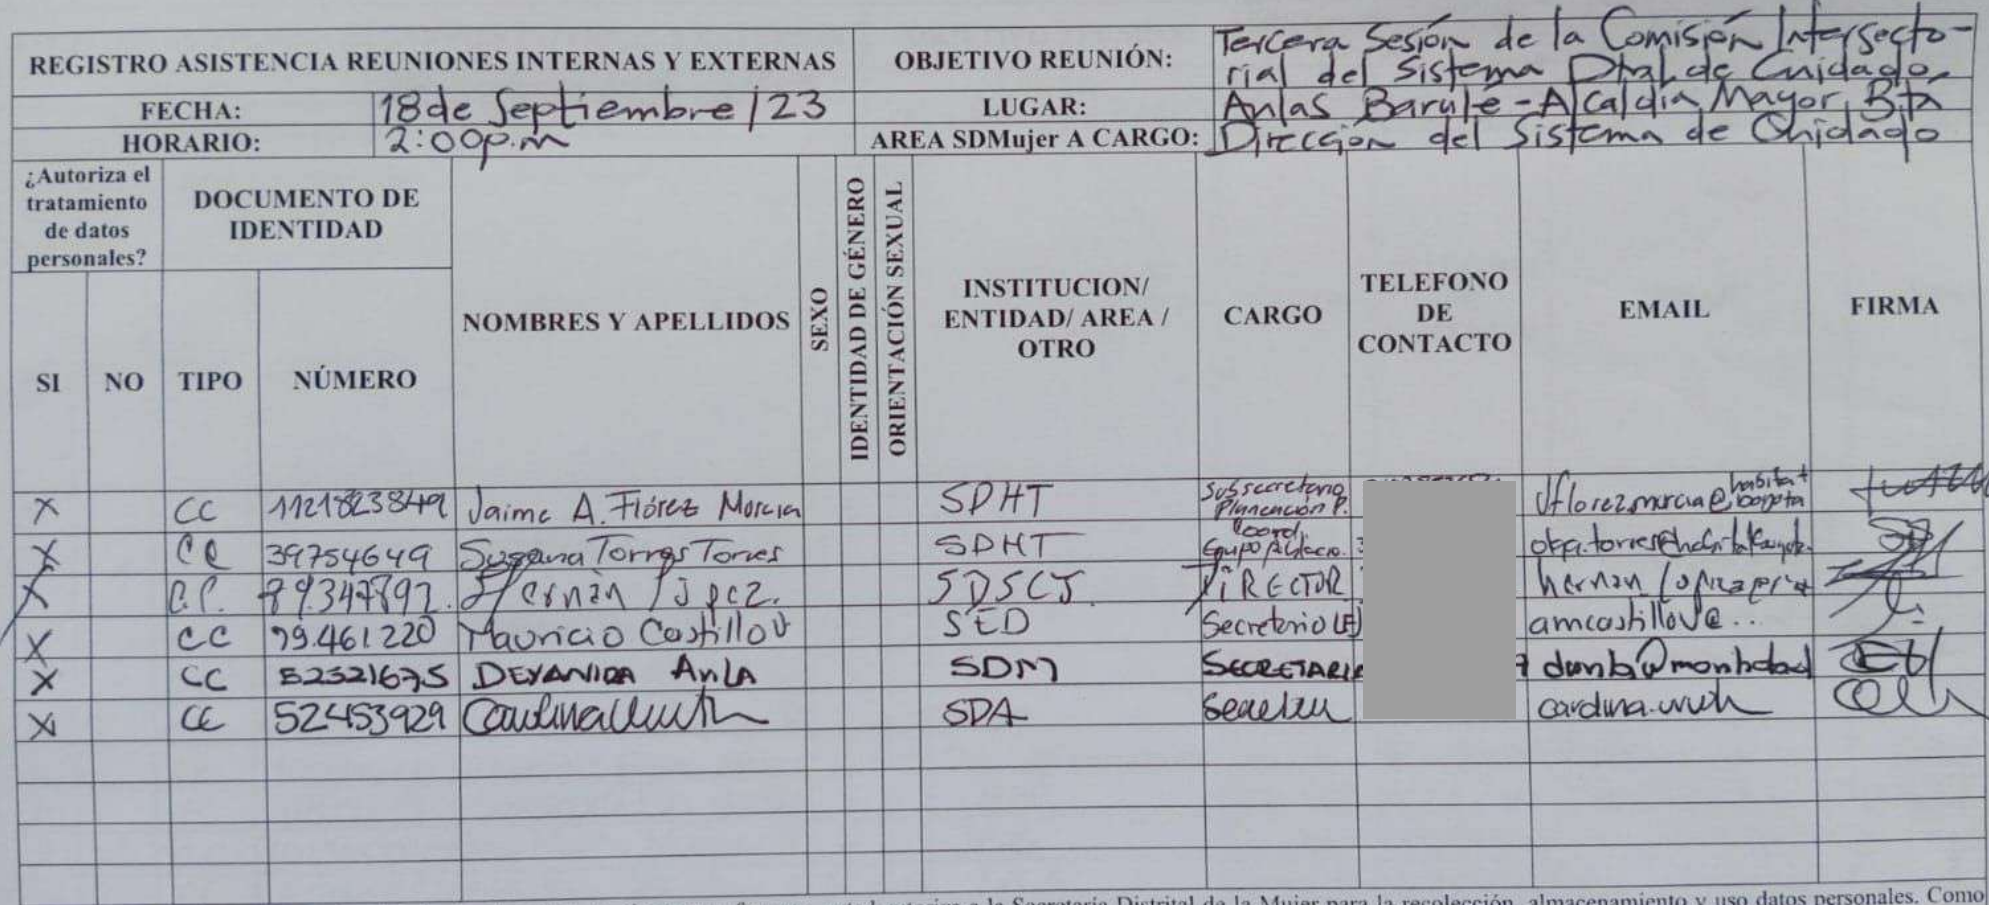 REGISTRO ASISTENCIA REUNIONES INTERNAS Y EXTERNAS
OBJETIVO REUNIÓN: Tercera Sesión de la Comisión Intersecto-
rial del Sistema Dtal de Cuidado
FECHA: 18 de Septiembre/23
LUGAR: Aulas Barule - Alcaldía Mayor Btá
HORARIO: 2:00p.m
AREA SDMujer A CARGO: Dirección del Sistema de Cuidado
¿Autoriza el
tratamiento
de datos
personales?
SI
NO
DOCUMENTO DE
IDENTIDAD
TIPO
NÚMERO
NOMBRES Y APELLIDOS
SEXO
IDENTIDAD DE GÉNERO
ORIENTACIÓN SEXUAL
INSTITUCION/
ENTIDAD/ AREA /
OTRO
CARGO
TELEFONO
DE
CONTACTO
EMAIL
FIRMA
X CC 1121823849 Jaime A. Flórez Murcia SDHT Subsecretario Planeación P.
X CC 39754649 Susana Torres Torres SDHT Coord. Equipo
X C.C. 79.347.897 Hernán López. SDSCJ. DIRECTOR
X CC 79.461220 Mauricio Castillo V SED Secretario (E) amcastillov@...
X CC 52321675 DEYANIRA AVILA SDM SECRETARIA
X CC 52453929 SDA
autoriza a la Secretaría Distrital de la Mujer para la recolección, almacenamiento y uso datos personales. Como